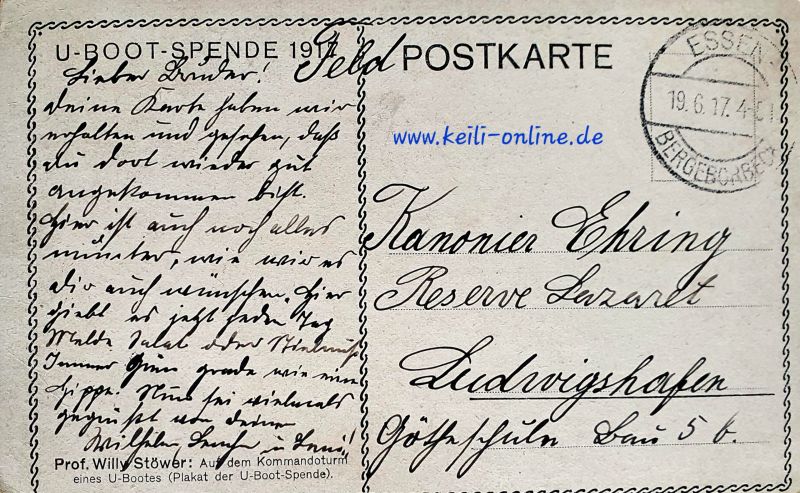 U-BOOT-SPENDE 1917
Feld POSTKARTE
Lieber Bruder!
Deine Karte haben wir
erhalten und gesehen, daß
du dort wieder gut
angekommen bist.
Hier ist auch noch alles
munter, wie wir es
dir auch wünschen. Hier
giebt es jetzt jeden Tag
Melde Salat oder
Immer grade wie eine
Nun sei vielmals
gegrüßt von deinem
Wilhelm, u
Prof. Willy Stöwer: Auf dem Kommandoturm
eines U-Bootes (Plakat der U-Boot-Spende).
ESSEN
19.6.17.4
BERGEBORBECK
www.keili-online.de
Kanonier Ehring
Reserve Lazaret
Ludwigshafen
Götheschule Bau 5 b.